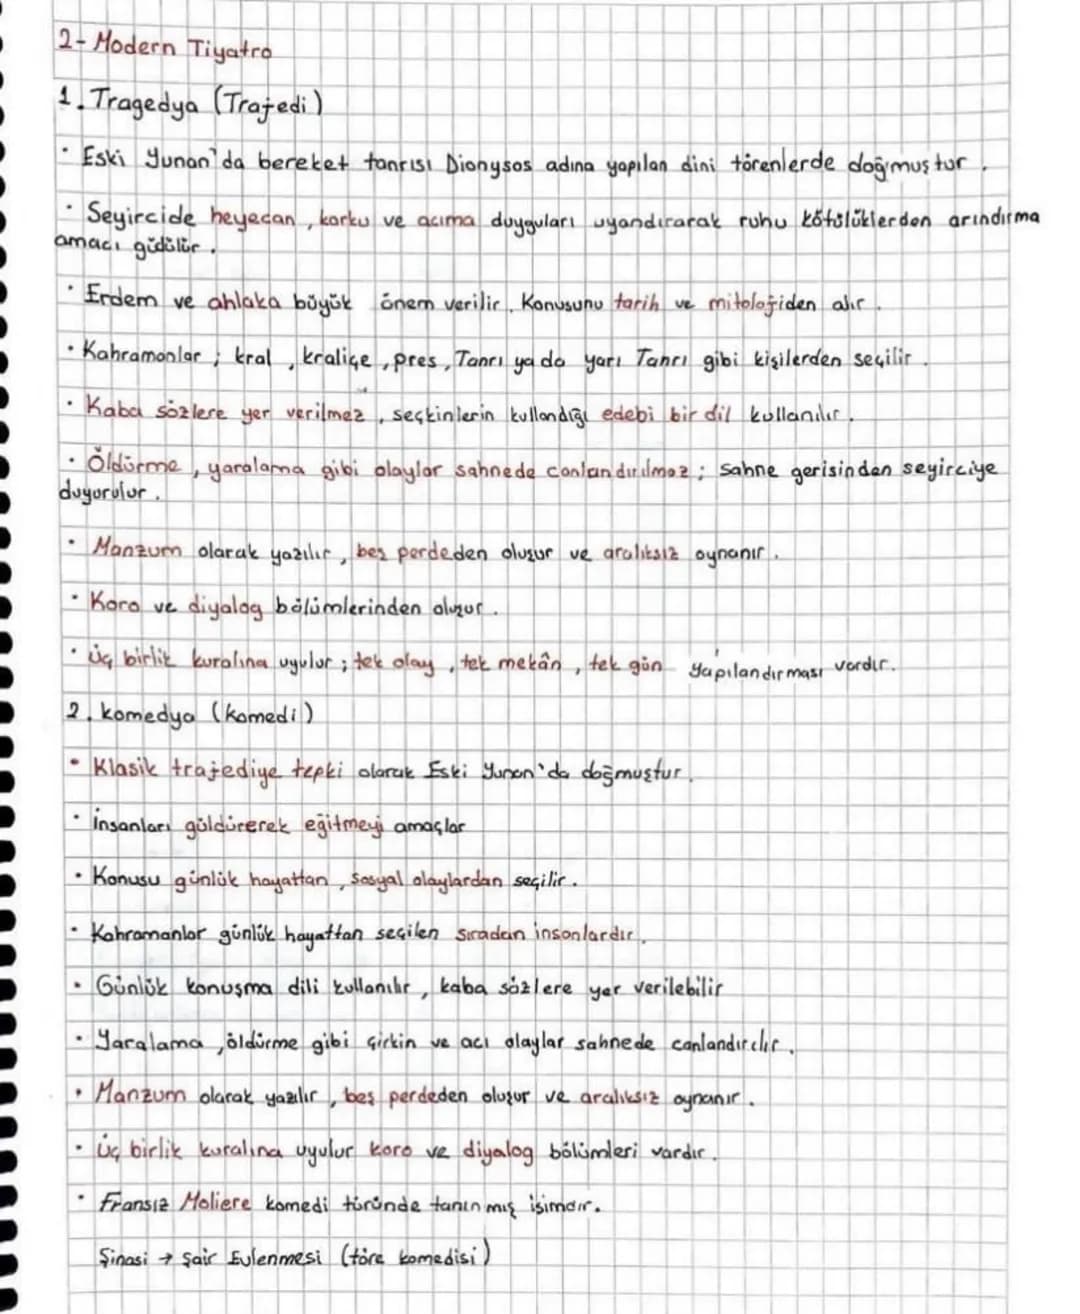 2- Modern Tiyatro
1. Tragedya (Trajedi)
· Eski Yunan'da bereket tanrısı Dionysos adına yapılan dini törenlerde doğmuştur.
· Seyircide heyecan, korku ve acıma duyguları uyandırarak ruhu kötülüklerden arındırma
amacı güdülür.
· Erdem ve ahlaka büyük önem verilir. Konusunu tarih ve mitolojiden alır.
· Kahramanlar; kral, kraliçe, pres, Tanrı ya da yarı Tanrı gibi kişilerden seçilir.
· Kaba sözlere yer verilmez, seçkinlerin kullandığı edebi bir dil kullanılır.
· Öldürme, yaralama gibi olaylar sahnede canlandırılmaz; sahne gerisinden seyirciye
duyurulur.
· Manzum olarak yazılır, beş perdeden oluşur ve aralıksız oynanır.
· Koro ve diyalog bölümlerinden oluşur.
· Üç birlik kuralına uyulur; tek olay, tek mekân, tek gün yapılandırması vardır.
2. Komedya (Komedi)
· Klasik trajediye tepki olarak Eski Yunan'da doğmuştur.
· İnsanları güldürerek eğitmeyi amaçlar
· Konusu günlük hayattan, sosyal olaylardan seçilir.
· Kahramanlar günlük hayattan seçilen sıradan insanlardır.
· Günlük konuşma dili kullanılır, kaba sözlere yer verilebilir
· Yaralama, öldürme gibi çirkin ve acı olaylar sahnede canlandırılır.
· Manzum olarak yazılır, beş perdeden oluşur ve aralıksız oynanır.
· Üç birlik kuralına uyulur koro ve diyalog bölümleri vardır.
· Fransız Moliere komedi türünde tanınmış isimdir.
Şinasi → Şair Evlenmesi (töre komedisi)